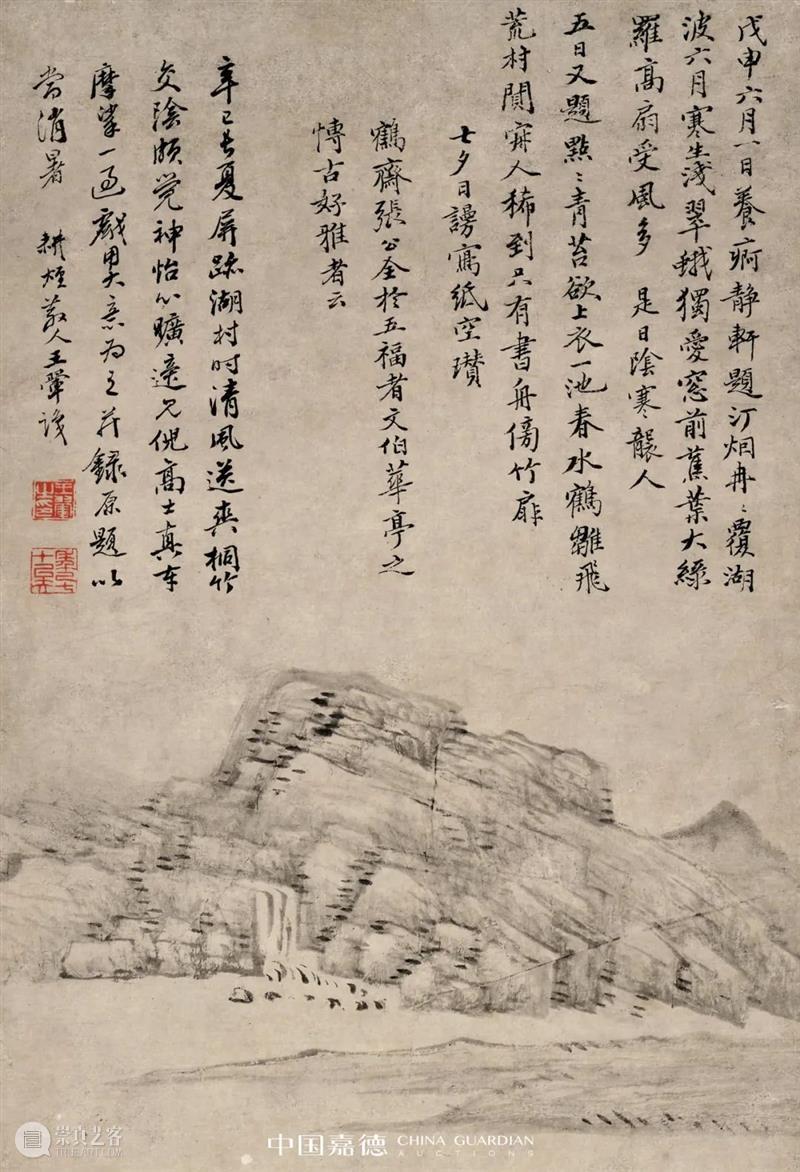 戊申六月一日養痾静軒題汀烟冉〻覆湖
波六月寒生淺翠蛾獨愛窓前蕉葉大緑
羅高扇受風多 是日陰寒襲人
五日又題點〻青苔欲上衣一池春水鶴雛飛
荒村閴寂人稀到只有書舟傍竹扉
七夕日謾寫紙空瓚
鶴齋張公全於五福者文伯華亭之
博古好雅者云
辛巳長夏屏跡湖村時清風送爽桐竹
交陰頗覺神怡心曠遠兄倪高士真本
摩挲一過戲其意為之并録原題以
當消暑 耕煙散人王翬識
王翬之印
中国嘉德 CHINA GUARDIAN
AUCTIONS
崇真艺客